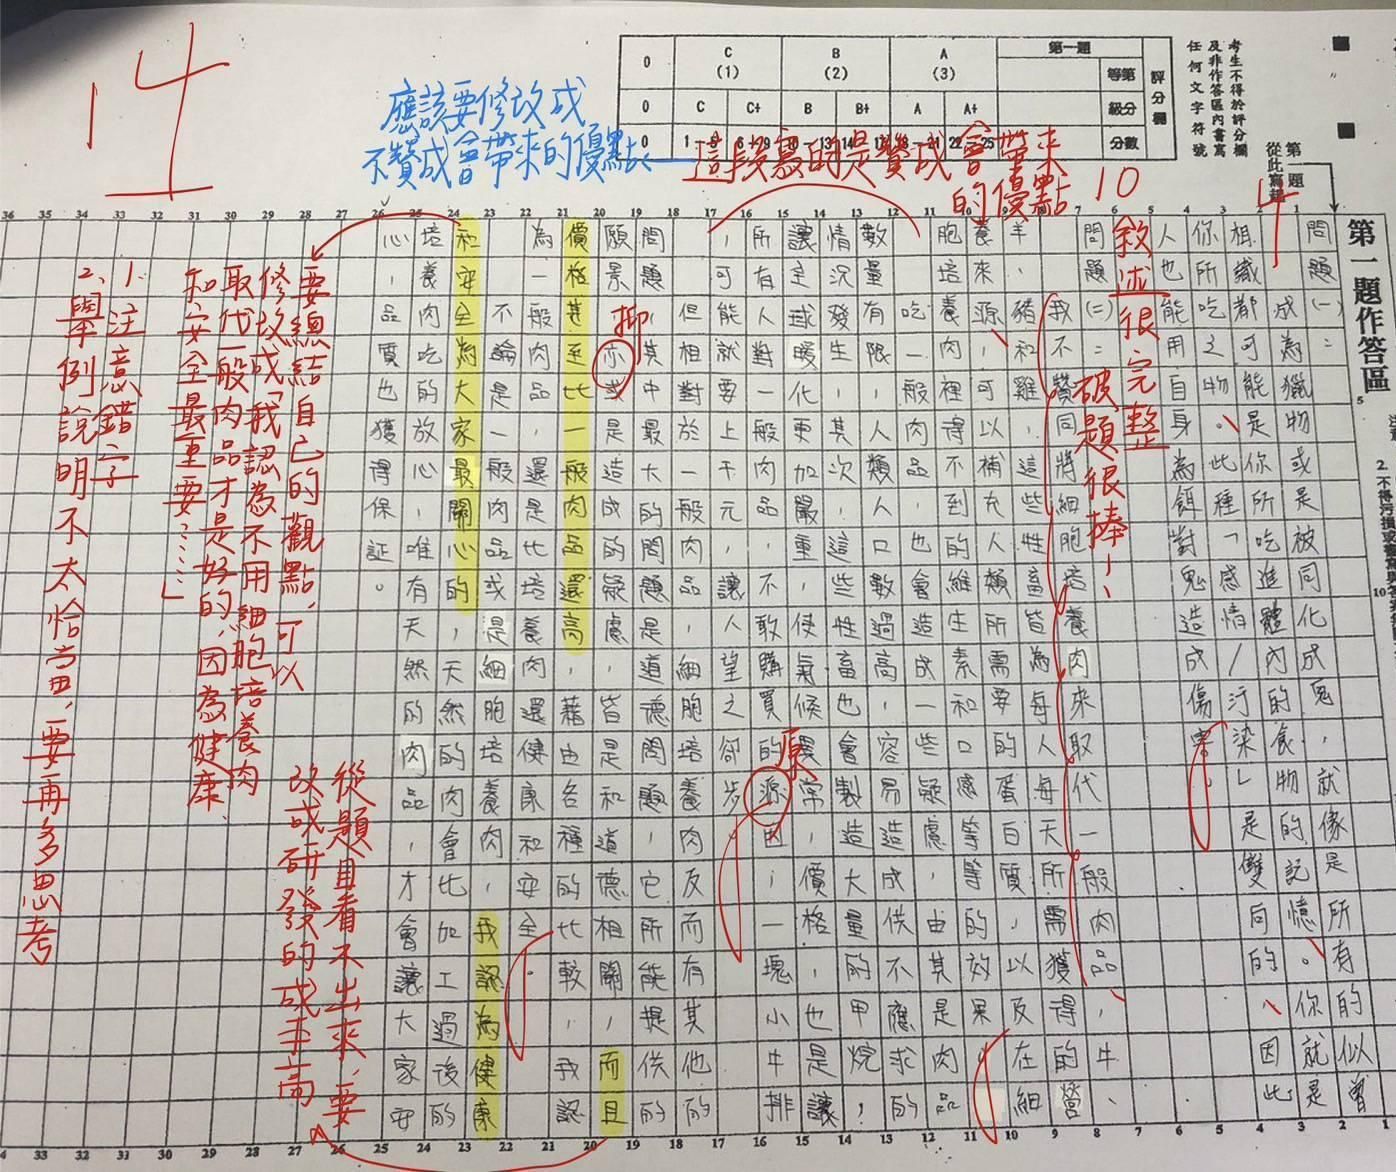 14
應該要修改成
不贊成會帶來的優點
這段寫的是贊成會帶來
的優點
10
4
考生不得於評分欄
及非作答區內書寫
任何文字符號
第一題
從此寫起
評分欄
第一題 A (3) B (2) C (1) 0
等第
級分 A+ A B+ B C+ C 0
分數 22-25 18-21 14-17 10-13 6-9 1-5 0
第一題作答區
問題(一)：成為獵物或是被同化成鬼，就像是所有的似曾
相識都可能是你所吃進體內的食物的記憶。你就是
你所吃之物、此種「感情/汙染」是雙向的、因此
人也能用自身為餌對鬼造成傷害
敘述很完整
問題(二)：我不贊同將細胞培養肉來取代一般肉品、牛、
破題很棒！
羊、豬和雞，這些牲畜皆為每人每天所需獲得的營
養來源，可以補充人類所需要的蛋白質，以及在細
胞培養肉裡得不到的維生素和口感等等的效果
吃一般肉品，也會造成一些疑慮，由其是肉品的
數量有限，人類人口數過高，容易造成供不應求的
情況發生，其次，這些牲畜也會製造大量的甲烷，
讓全球暖化更加嚴重，使氣候異常，價格也是讓
所有人對一般肉品，不敢購買的源因，一塊小牛排
原
，可能就要上千元，讓人望之卻步
但相對於一般肉品，細胞培養肉反而有其他的
問題，其中最大的問題是道德問題，它所能提供的
願景亦或是造成的疑慮，皆是和道德相關，而且
抑
價格甚至比一般肉品還高，藉由各種的比較，我認
為一般肉品，還是比培養肉還健康和安全。
不論是一般肉品或是細胞培養肉，我認為健康
和安全為大家最關心的，天然的肉會比加工過後的
培養肉吃的放心，唯有天然的肉品，才會讓大家安
心，品質也獲得保證。
從題目看不出來，要
改成研發的成本高
要總結自己的觀點，可以
修改成「我認為不用細胞培養肉
取代一般肉品才是好的，因為健康
和安全最重要……」
1. 注意錯字
2. 舉例說明不太恰當，要再多思考